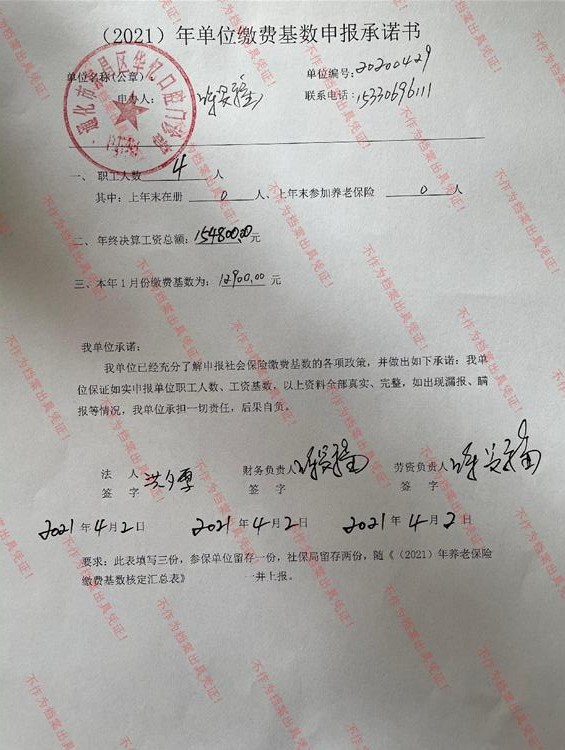 （2021）年单位缴费基数申报承诺书
单位名称(公章)：
单位编号：20200429
申办人：
联系电话：15330696111
一、 职工人数 4 人
其中：上年末在册 0 人、上年末参加养老保险 0 人
二、年终决算工资总额：154800.00元
三、本年1月份缴费基数为：12900.00 元
我单位承诺：
我单位已经充分了解申报社会保险缴费基数的各项政策，并做出如下承诺：我单
位保证如实申报单位职工人数、工资基数，以上资料全部真实、完整，如出现漏报、瞒
报等情况，我单位承担一切责任，后果自负。
法 人 财务负责人 劳资负责人
签 字 签 字 签 字
2021 年 4 月 2 日 2021 年 4 月 2 日 2021 年 4 月 2 日
要求：此表填写三份，参保单位留存一份，社保局留存两份，随《（2021）年养老保险
缴费基数核定汇总表》 一并上报。
不作为档案出具凭证！